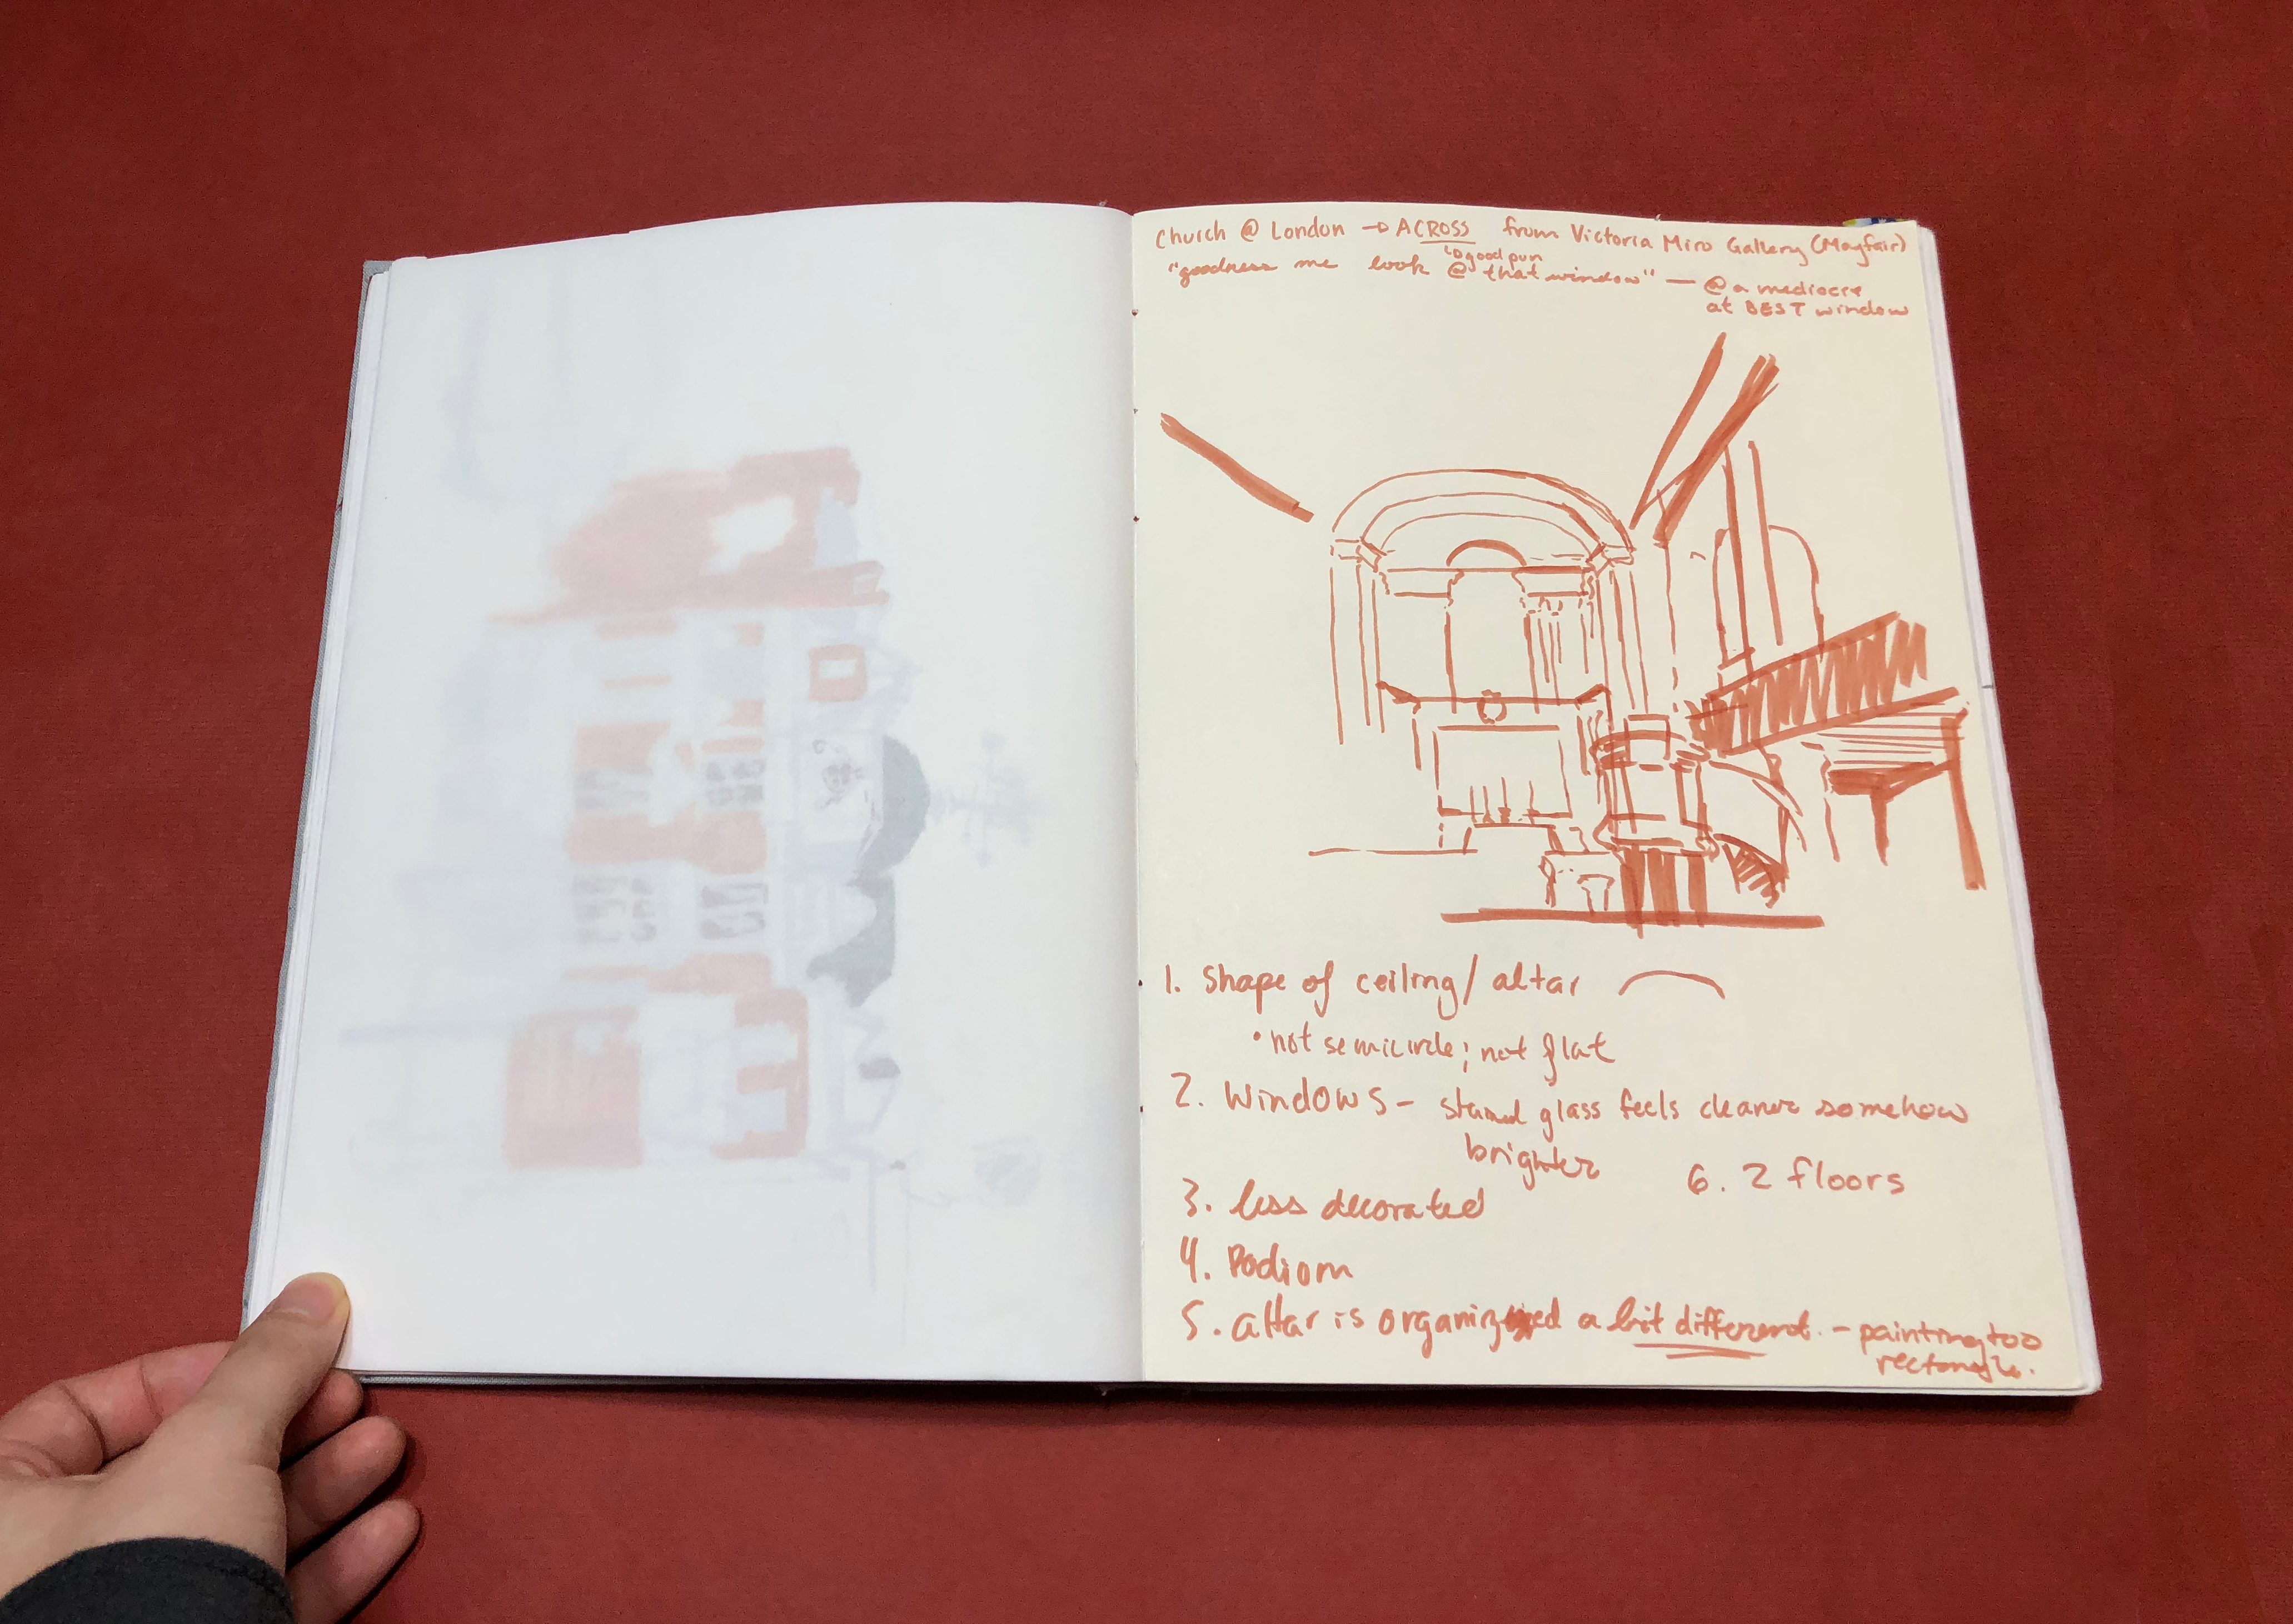 Church @ London → ACROSS from Victoria Miro Gallery (Mayfair)
↳ good pun
"goodness me look @ that window" — @ a mediocre
at BEST window
1. Shape of ceiling / altar
• not semicircle; not flat
2. Windows - stained glass feels cleaner somehow
brighter
6. 2 floors
3. less decorated
4. Podiom
5. altar is organized a bit different. - painting too
rectangle.